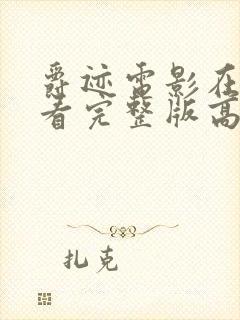 爵迹电影在
看完整版高
扎克